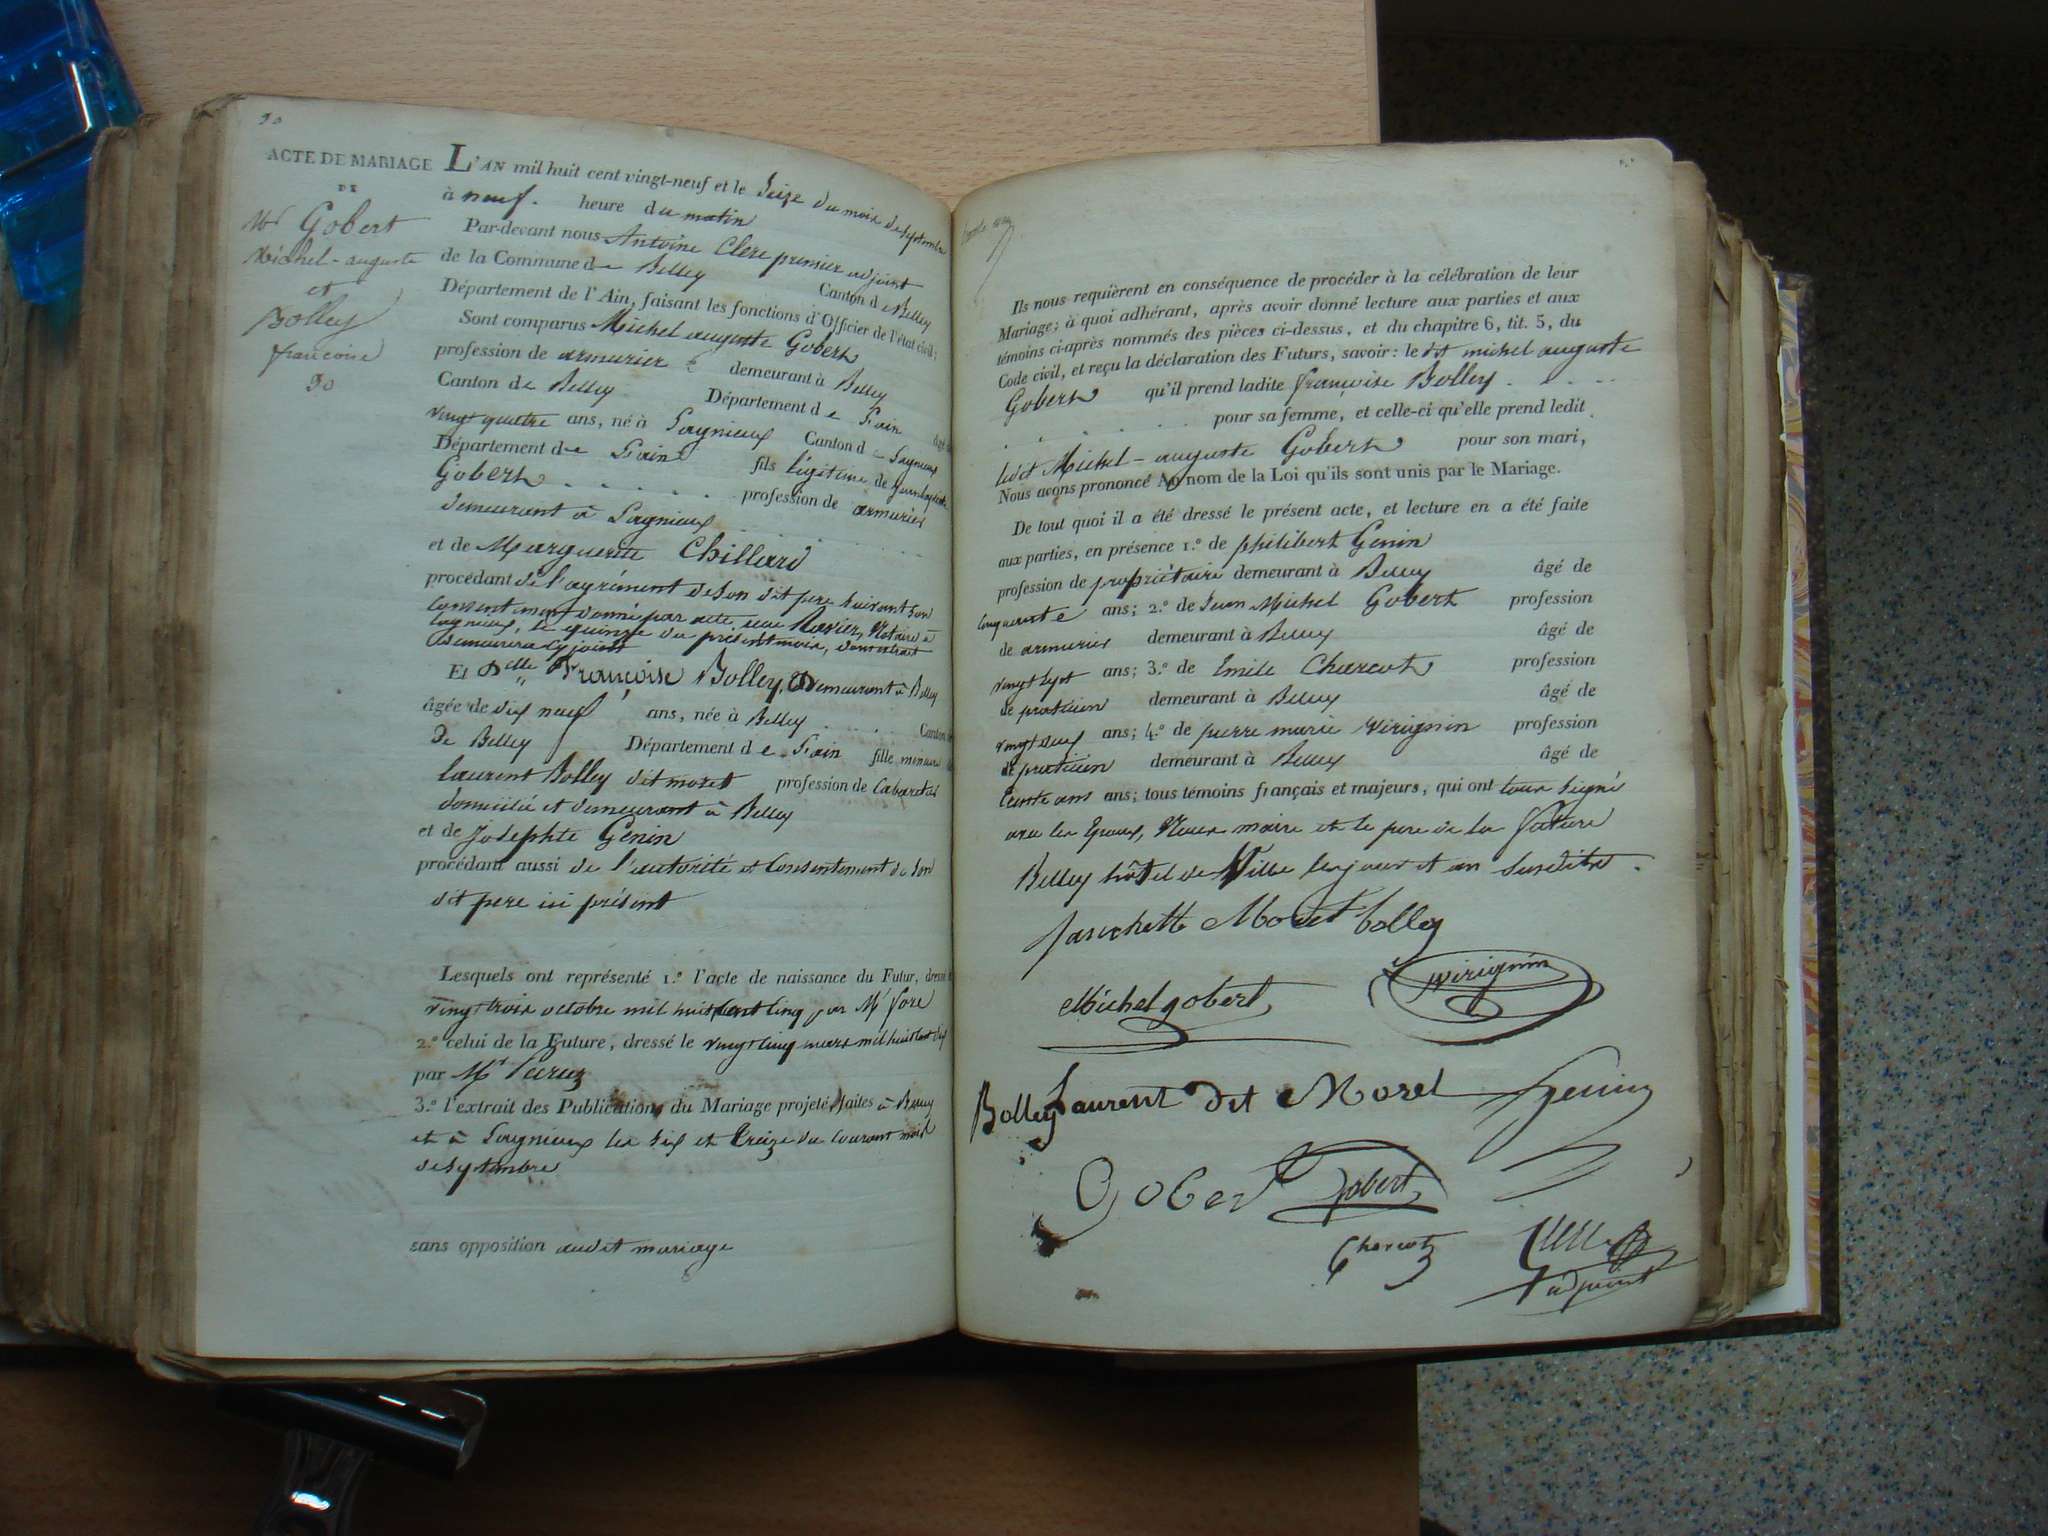 30
ACTE DE MARIAGE
DE
Mr Gobert
Michel-auguste
et
Bolley
françoise
30
L'AN mil huit cent vingt-neuf et le seize du mois de septembre
à neuf. heure du matin
Par-devant nous Antoine Clerc premier adjoint
de la Commune de Belley Canton de Belley
Département de l'Ain, faisant les fonctions d'Officier de l'état civil;
Sont comparus Michel auguste Gobert
profession de armurier demeurant à Belley
Canton de Belley Département de l'ain âgé de
vingt quatre ans, né à Lagnieux Canton de Lagnieux
Département de l'ain fils légitime de Jean baptiste
Gobert profession de armurier
demeurant à Lagnieux
et de Marguerite Chillard
procédant de l'agrément de son dit pere suivant son
Consentement donné par acte, reçu Ravier, Notaire à
Lagnieux, le quinze du présent mois, dont extrait
demeurera cy joint
Et Delle Françoise Bolley, Demeurant à Belley
âgée de dix neuf ans, née à Belley Canton
de Belley Département de l'ain fille mineure de
Laurent Bolley dit morel profession de Cabaretier
domicilié et demeurant à Belley
et de Josephte Genin
procédant aussi de l'autorité et Consentement de son
dit pere ici présent
Lesquels ont représenté 1.º l'acte de naissance du Futur, dressé le
vingt trois octobre mil huit cent cinq par Mr fore
2.º celui de la Future, dressé le vingt cinq mars mil huit cent dix
par Mr
3.º l'extrait des Publications du Mariage projeté, faites à Belley
et à Lagnieux les six et treize du courant mois
de septembre
sans opposition audit mariage
Ils nous requièrent en conséquence de procéder à la célébration de leur
Mariage; à quoi adhérant, après avoir donné lecture aux parties et aux
témoins ci-après nommés des pièces ci-dessus, et du chapitre 6, tit. 5, du
Code civil, et reçu la déclaration des Futurs, savoir: le dit michel auguste
Gobert qu'il prend ladite françoise Bolley
pour sa femme, et celle-ci qu'elle prend ledit
ledit Michel-auguste Gobert pour son mari,
Nous avons prononcé Au nom de la Loi qu'ils sont unis par le Mariage.
De tout quoi il a été dressé le présent acte, et lecture en a été faite
aux parties, en présence 1.º de philibert Genin
profession de propriétaire demeurant à Belley âgé de
cinquante ans; 2.º de Jean Michel Gobert profession
de armurier demeurant à Belley âgé de
vingt sept ans; 3.º de Emile Charcot profession
de praticien demeurant à Belley âgé de
vingt deux ans; 4.º de pierre marie virignin profession
de praticien demeurant à Belley âgé de
trente ans ans; tous témoins français et majeurs, qui ont tous signé
avec les Epoux, Nous maire et le pere de la future
Belley hôtel de Ville les jour et an susdits.
fanchette Morel bolley
virignin
Michel gobert
Bolley Laurent dit Morel Genin
Gobert Gobert
Charcot Clerc
adjoint